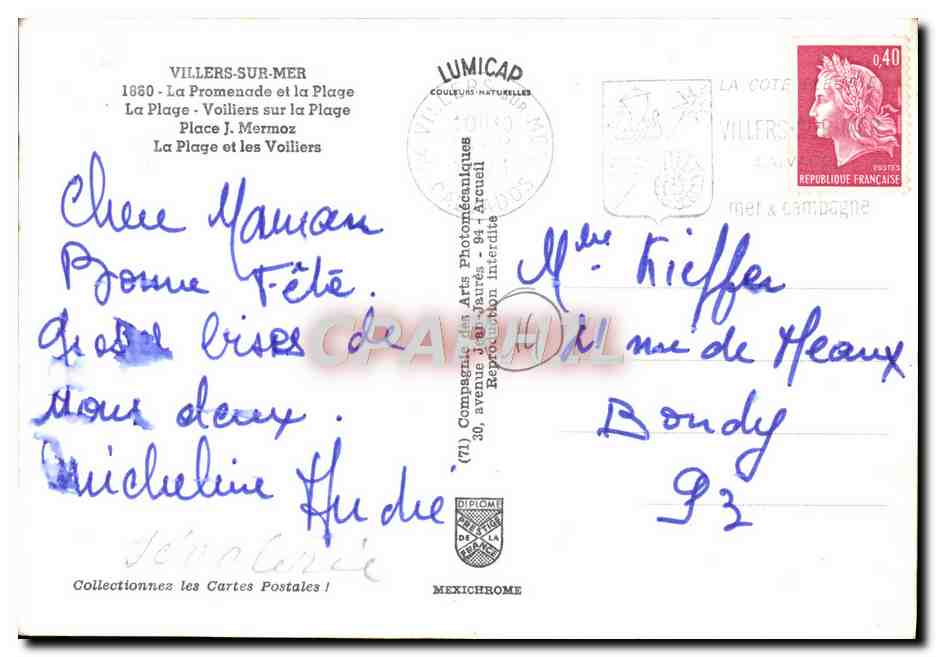 VILLERS-SUR-MER
1880 - La Promenade et la Plage
La Plage - Voiliers sur la Plage
Place J. Mermoz
La Plage et les Voiliers
LUMICAP
COULEURS NATURELLES
VILLERS-SUR-MER
CALVADOS
LA COTE
VILLERS
mer & campagne
0,40
POSTES
REPUBLIQUE FRANÇAISE
Chere Maman
Bonne Fête.
Grosses bises de
nous deux.
Micheline André
Mme Kieffer
21 rue de Meaux
Bondy
93
(71) Compagnie des Arts Photomécaniques
30, avenue Jean-Jaurès - 94 - Arcueil
Reproduction interdite
CPARAMA
DIPLOME
PRESTIGE
DE LA
FRANCE
MEXICHROME
Collectionnez les Cartes Postales !